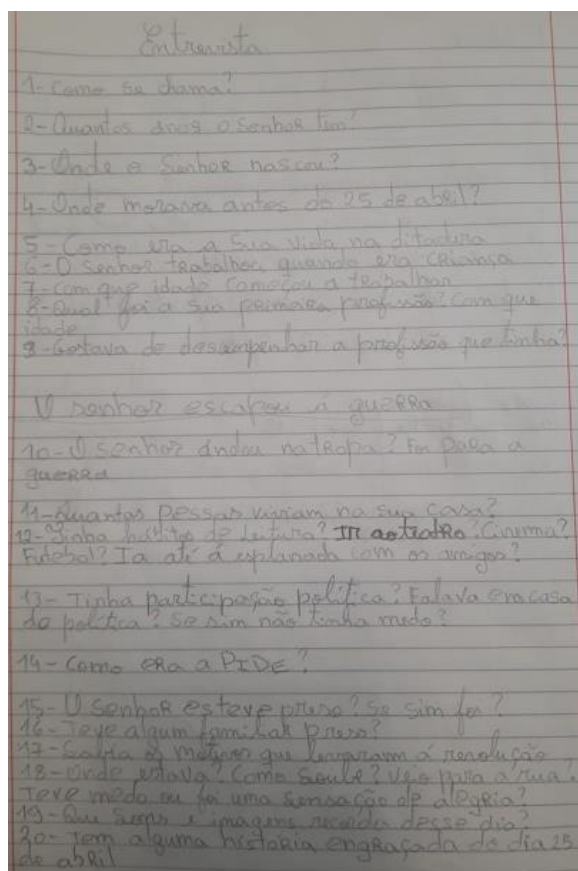 Entrevista
1- Como se chama?
2- Quantos anos o senhor tem?
3- Onde o Senhor nasceu?
4- Onde morava antes do 25 de abril?
5- Como era a sua vida, na ditadura
6- O senhor trabalhou quando era criança
7- Com que idade começou a trabalhar
8- Qual foi a sua primeira profissão? Com que
idade
9- Gostava de desempenhar a profissão que tinha?
O senhor escapou á guerra
10- O senhor andou na tropa? Foi para a
guerra
11- Quantas pessoas viviam na sua casa?
12- Tinha hábitos de leitura? Ir ao teatro? Cinema?
Futebol? Ia até á esplanada com os amigos?
13- Tinha participação política? Falava em casa
de política? Se sim não tinha medo?
14- Como era a PIDE?
15- O Senhor esteve preso? Se sim foi?
16- Teve algum familiar preso?
17- Sabia os motivos que levaram á revolução
18- Onde estava? Como soube? Veio para a rua?
Teve medo ou foi uma sensação de alegria?
19- Que sons e imagens recorda desse dia?
20- Tem alguma história engraçada do dia 25
de abril